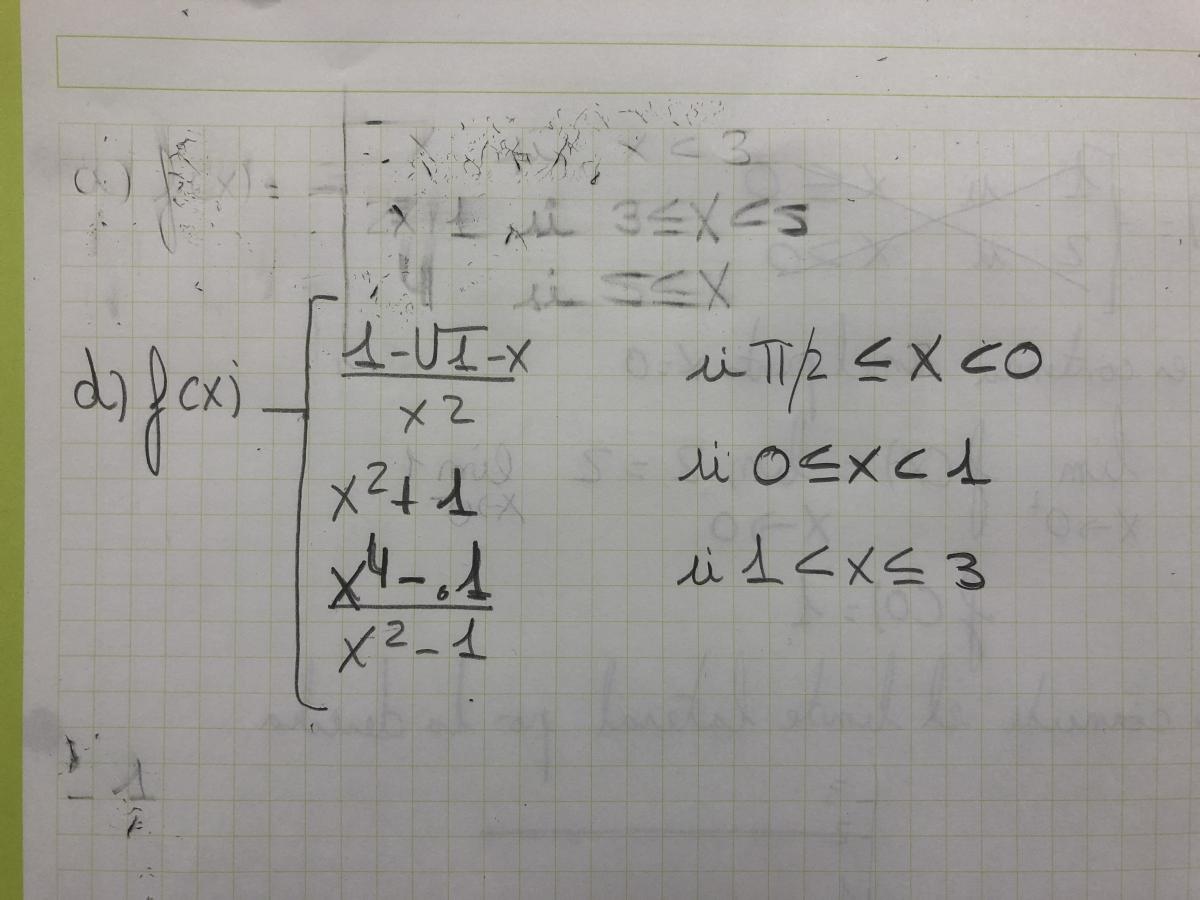 x < 3
x 1 si 3 ≤ x < 5
4 si 5 ≤ x
d) f(x) 1-√1-x / x2 si π/2 ≤ x < 0
x²+1 si 0 ≤ x < 1
x⁴-.1 / x²-1 si 1 < x ≤ 3
- 1